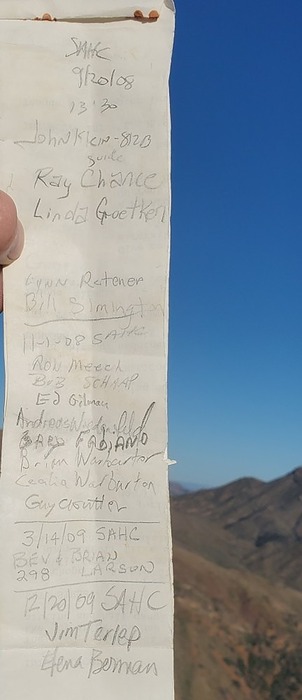 SAHC
9/20/08
13:30
John Klein - 812B
guide
Ray Chance
Linda Goetken
Lynn Ratener
Bill Simington
11-1-08 SAHC
Rob Meech
BoB SCHAAP
Ed Gilman
Andreas
FABIANO
Brian Warburton
Cecelia Warburton
Guy Cloutier
3/14/09 SAHC
BEV & BRIAN
298 LARSON
12/20/09 SAHC
Jim Terlep
Elena Berman